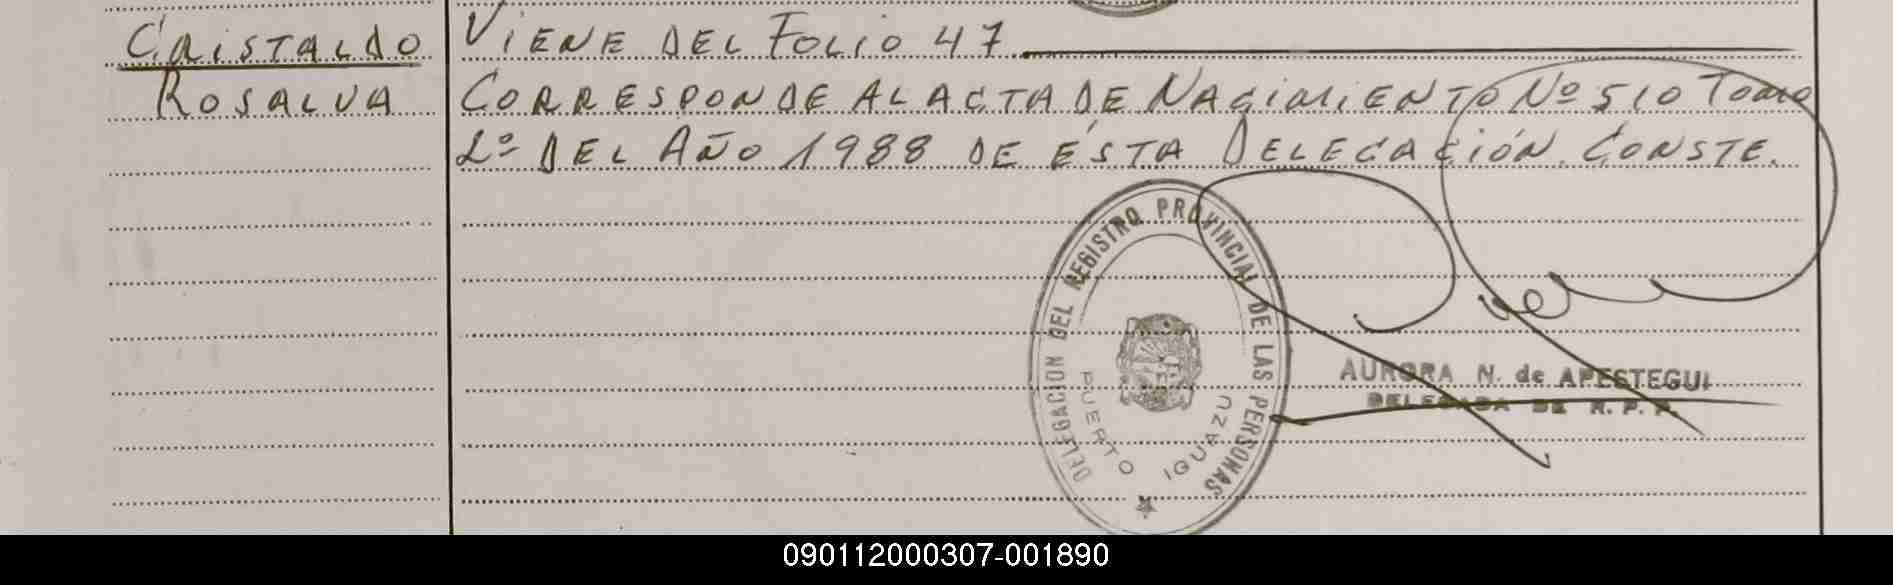 CRISTALDO
ROSALVA
VIENE DEL FOLIO 47
CORRESPONDE AL ACTA DE NACIMIENTO Nº 510 TOMO
2º DEL AÑO 1988 DE ÉSTA DELEGACIÓN. CONSTE.
DELEGACION DEL REGISTRO PROVINCIAL DE LAS PERSONAS
PUERTO IGUAZU
AURORA N. de APESTEGUI
DELEGADA DE R. P. P.
090112000307-001890